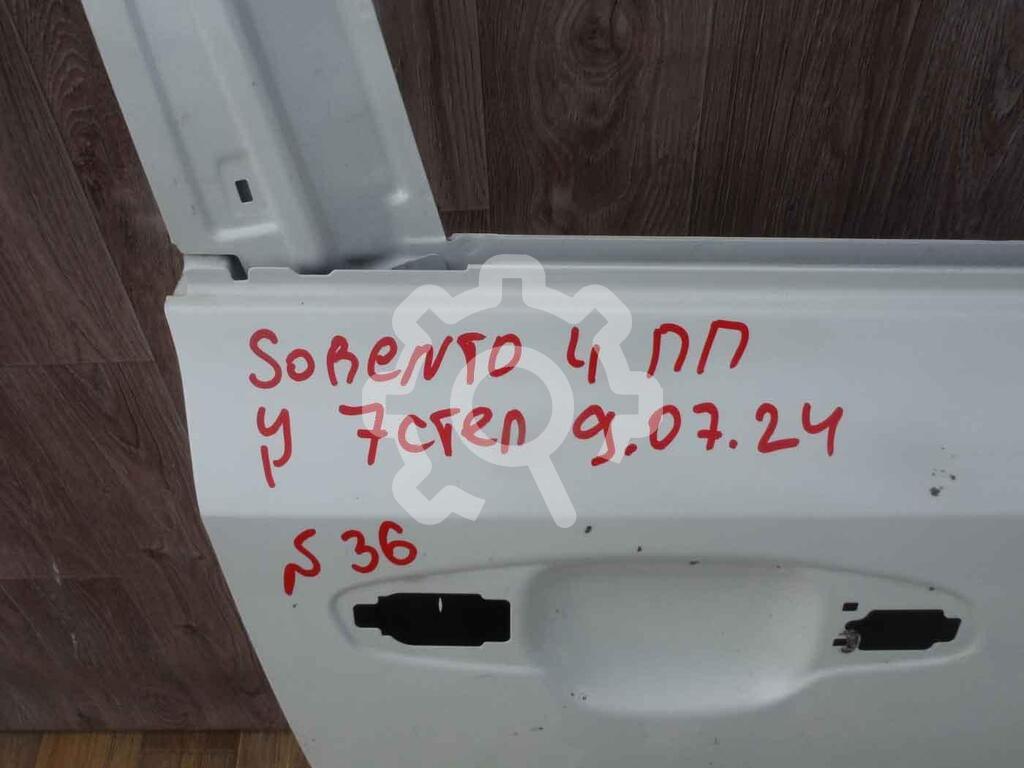 SORENTO 4 ПП
У 7стел 9.07.24
N 36